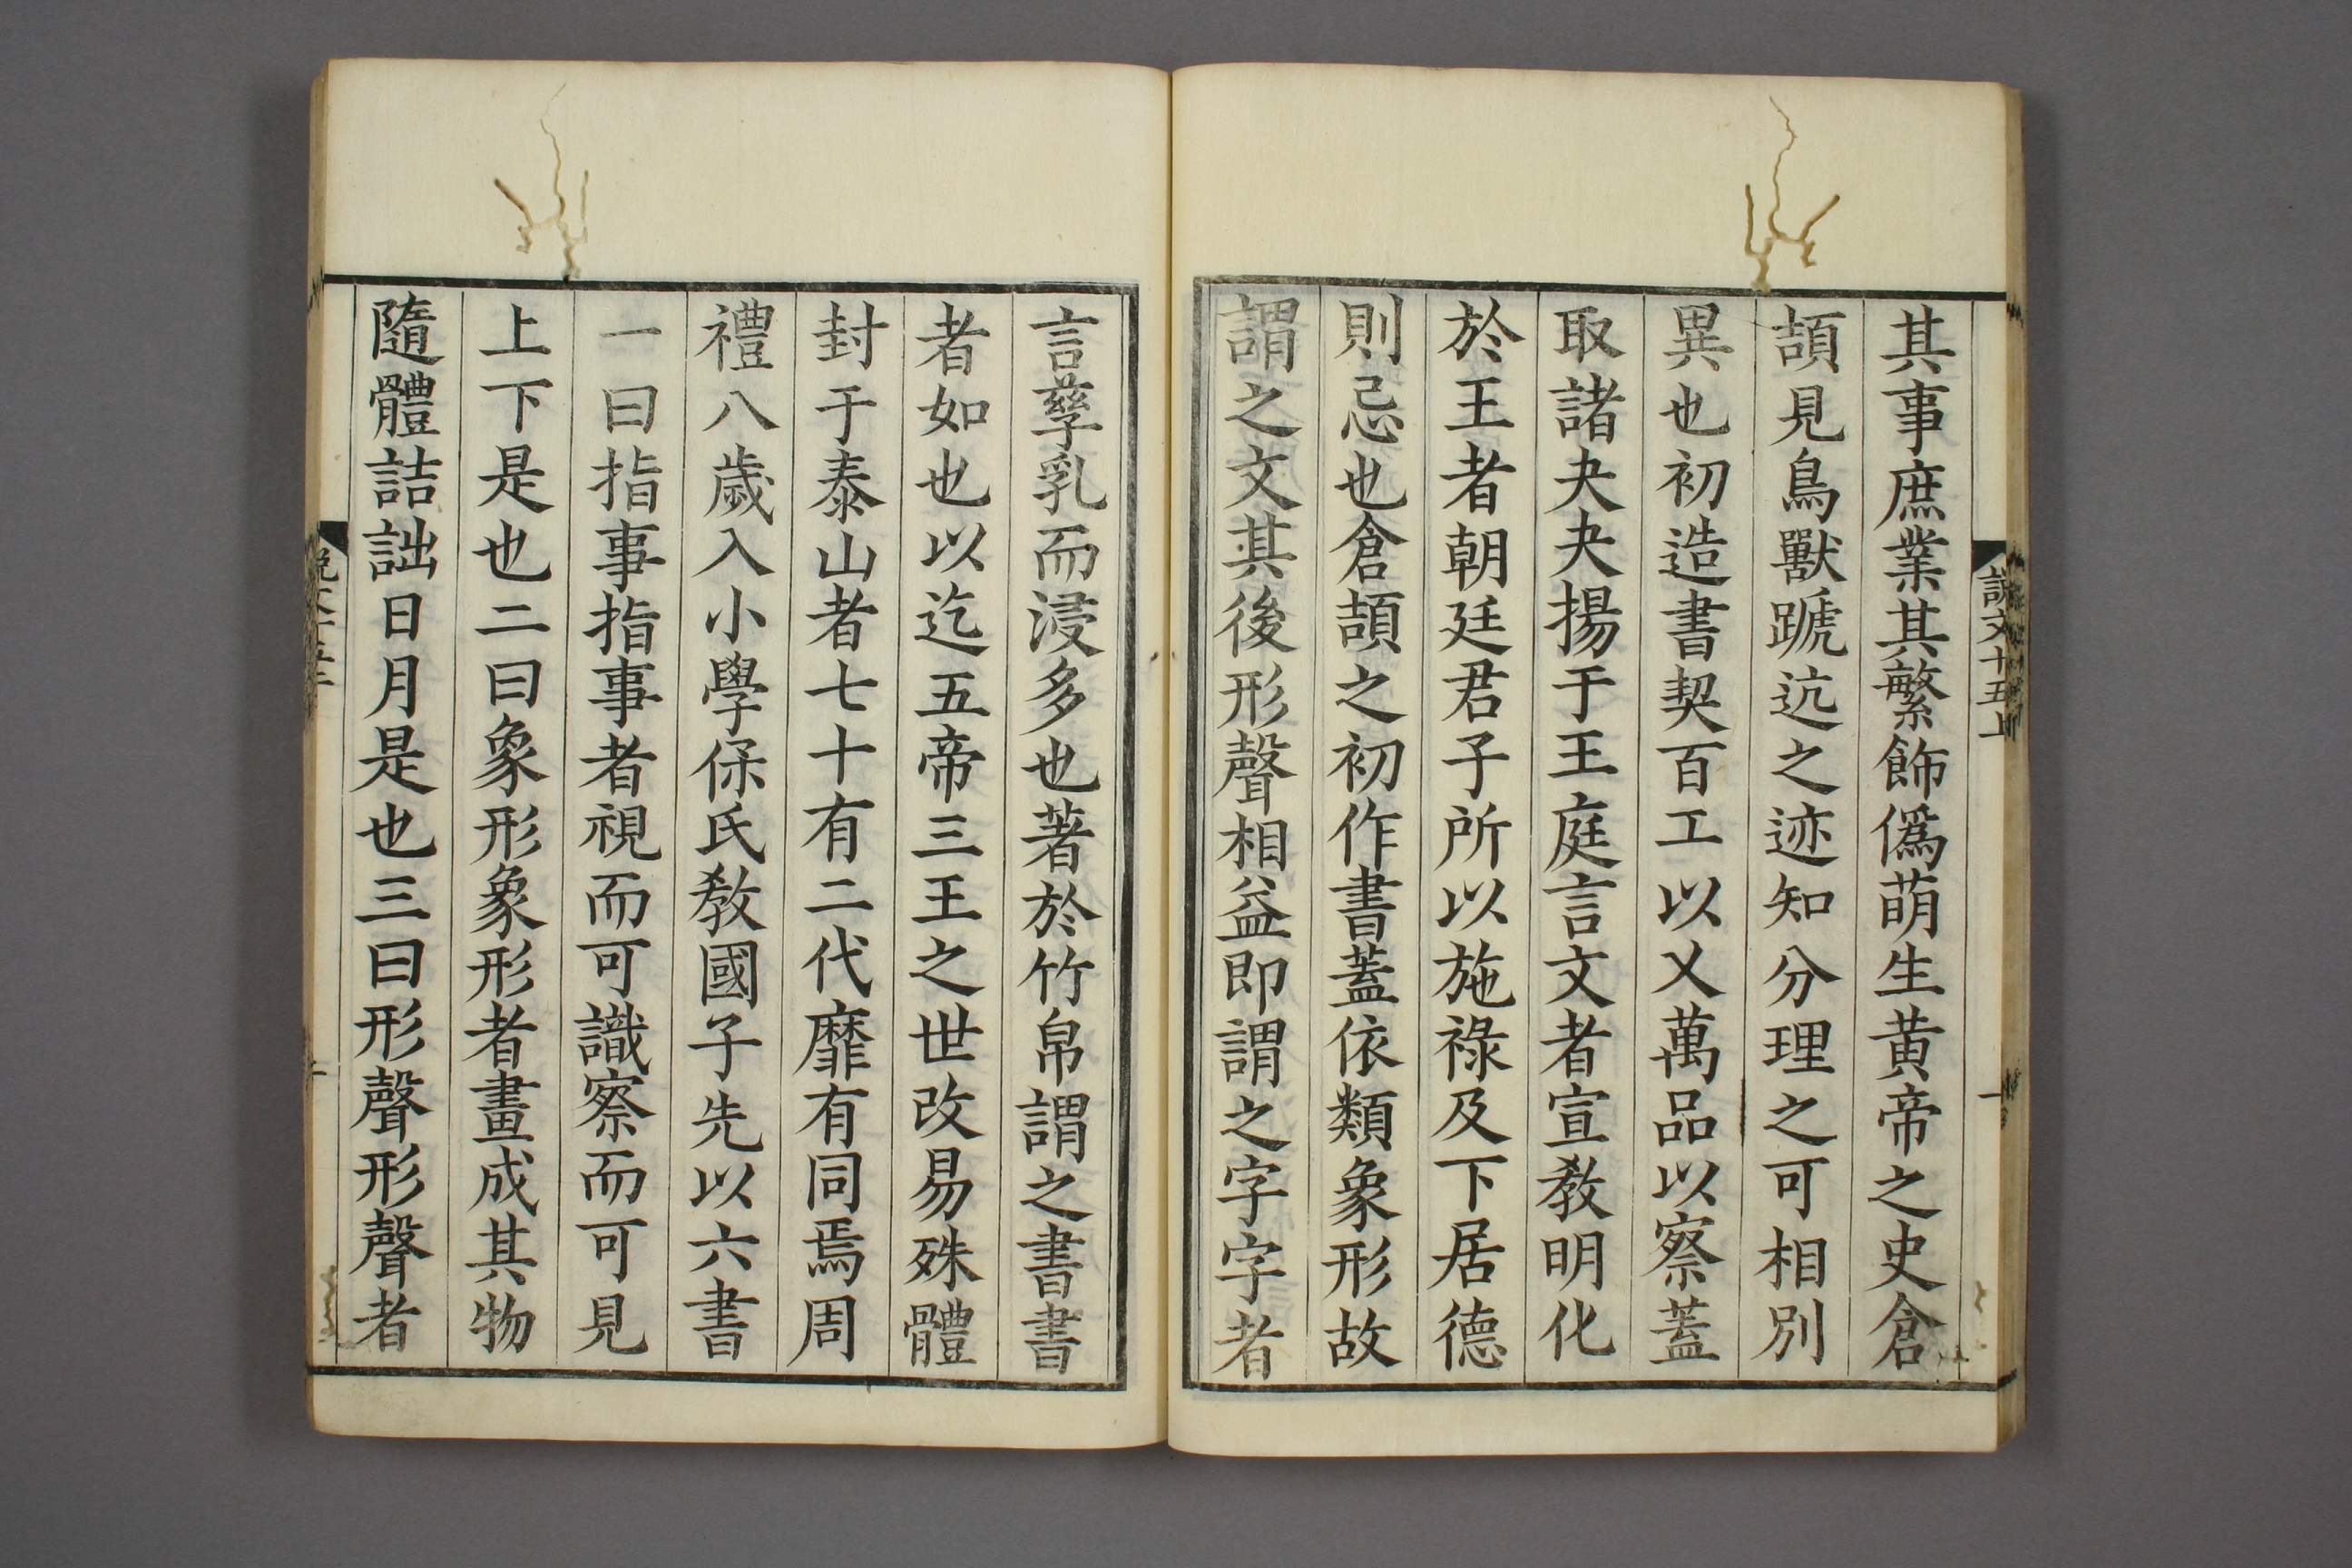 說文十五上
一
其事庶業其繁飾僞萌生黄帝之史倉
頡見鳥獸蹏迒之迹知分理之可相別
異也初造書契百工以乂萬品以察蓋
取諸夬夬揚于王庭言文者宣敎明化
於王者朝廷君子所以施祿及下居德
則忌也倉頡之初作書蓋依類象形故
謂之文其後形聲相益即謂之字字者
言孳乳而浸多也著於竹帛謂之書書
者如也以迄五帝三王之世改易殊體
封于泰山者七十有二代靡有同焉周
禮八歲入小學保氏敎國子先以六書
一曰指事指事者視而可識察而可見
上下是也二曰象形象形者畫成其物
隨體詰詘日月是也三曰形聲形聲者